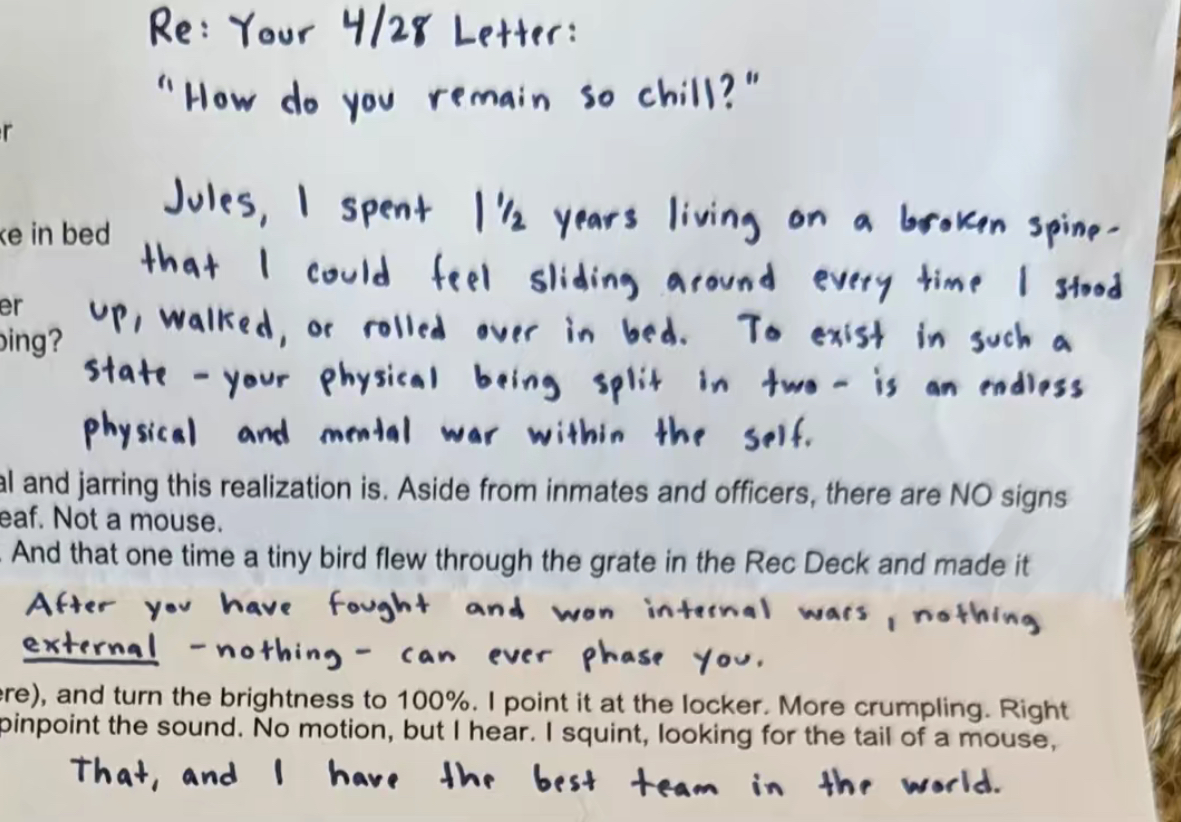 Re: Your 4/28 Letter:
"How do you remain so chill?"
er
Jules, I spent 1 1/2 years living on a broken spine-
ke in bed
that I could feel sliding around every time I stood
er
up, walked, or rolled over in bed. To exist in such a
ping?
state - your physical being split in two - is an endless
physical and mental war within the self.
al and jarring this realization is. Aside from inmates and officers, there are NO signs
eaf. Not a mouse.
. And that one time a tiny bird flew through the grate in the Rec Deck and made it
After you have fought and won internal wars, nothing
external - nothing - can ever phase you.
ere), and turn the brightness to 100%. I point it at the locker. More crumpling. Right
pinpoint the sound. No motion, but I hear. I squint, looking for the tail of a mouse,
That, and I have the best team in the world.